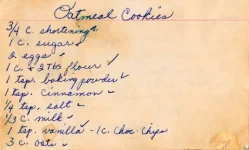 Oatmeal Cookies
3/4 c. shortening
1 c. sugar
2 eggs
1 c. + 2 Tbs flour
1 tsp. baking powder
1 tsp. cinnamon
1/4 tsp. salt
1/3 c. milk
1 tsp. vanilla - 1 c. Choc. Chips
3 c. oats